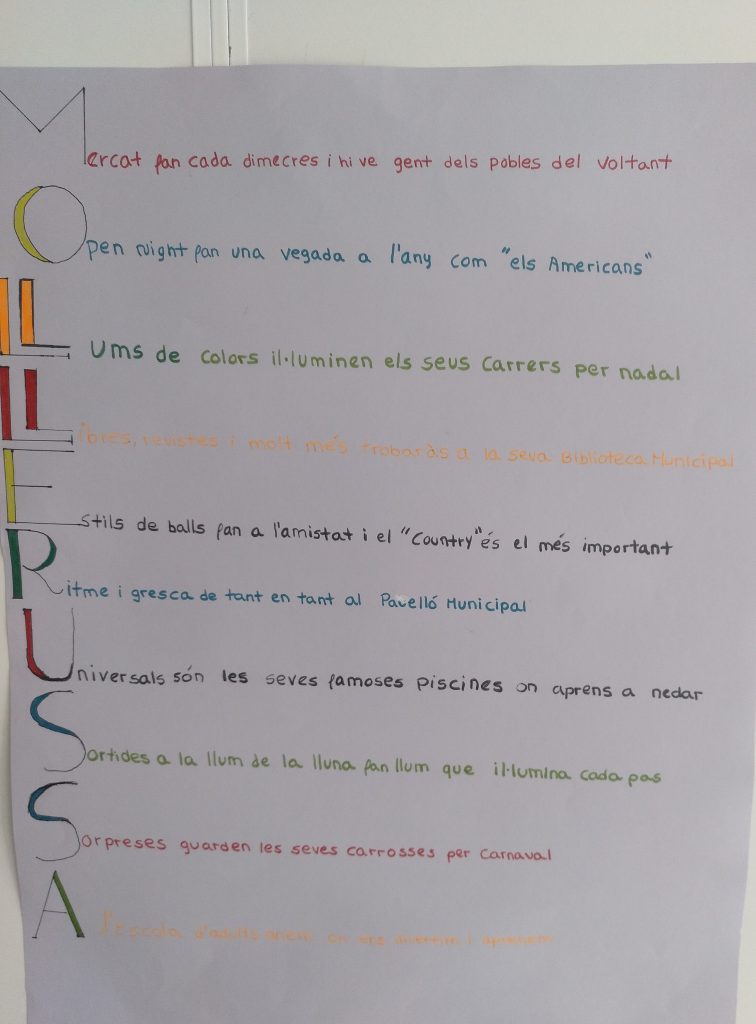 Mercat fan cada dimecres i hi ve gent dels pobles del voltant
Open Night fan una vegada a l'any com "els Americans"
LLums de colors il·luminen els seus carrers per nadal
LLibres, revistes i molt més trobaràs a la seva Biblioteca Municipal
Estils de balls fan a l'amistat i el "Country" és el més important
Ritme i gresca de tant en tant al Pavelló Municipal
Universals són les seves famoses piscines on aprens a nedar
Sortides a la llum de la lluna fan llum que il·lumina cada pas
Sorpreses guarden les seves carrosses per Carnaval
A l'escola d'adults anem on ens divertim i aprenem